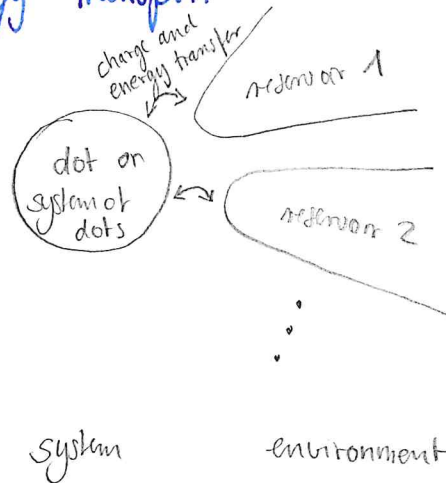 transport
charge and
energy transfer
reservoir 1
dot or
system of
dots
reservoir 2
system
environment